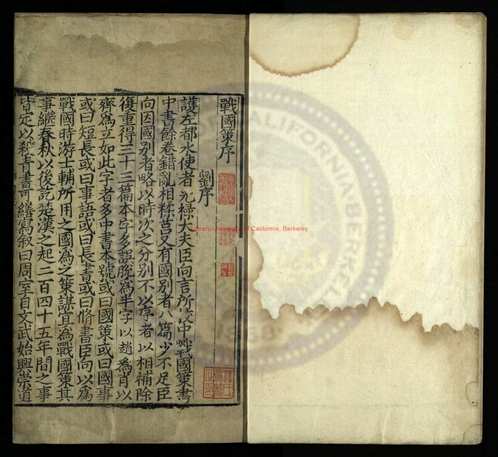 戰國策序
劉序
護左都水使者光祿大夫臣向言所校中戰國策書
中書餘卷錯亂相糅莒又有國別者八篇少不足臣
向因國別者略以時次之分別不以序者以相補除
復重得三十三篇本字多誤脫為半字以趙為肖以
齊為立如此字者多中書本號或曰國策或曰國事
或曰短長或曰事語或曰長書或曰脩書臣向以為
戰國時游士輔所用之國為之策謀宜為戰國策其
事繼春秋以後訖楚漢之起二百四十五年間之事
皆定以殺青書可繕寫敘曰周室自文武始興崇道
of California, Berkeley
CALIFORNIA BERKELEY
1868